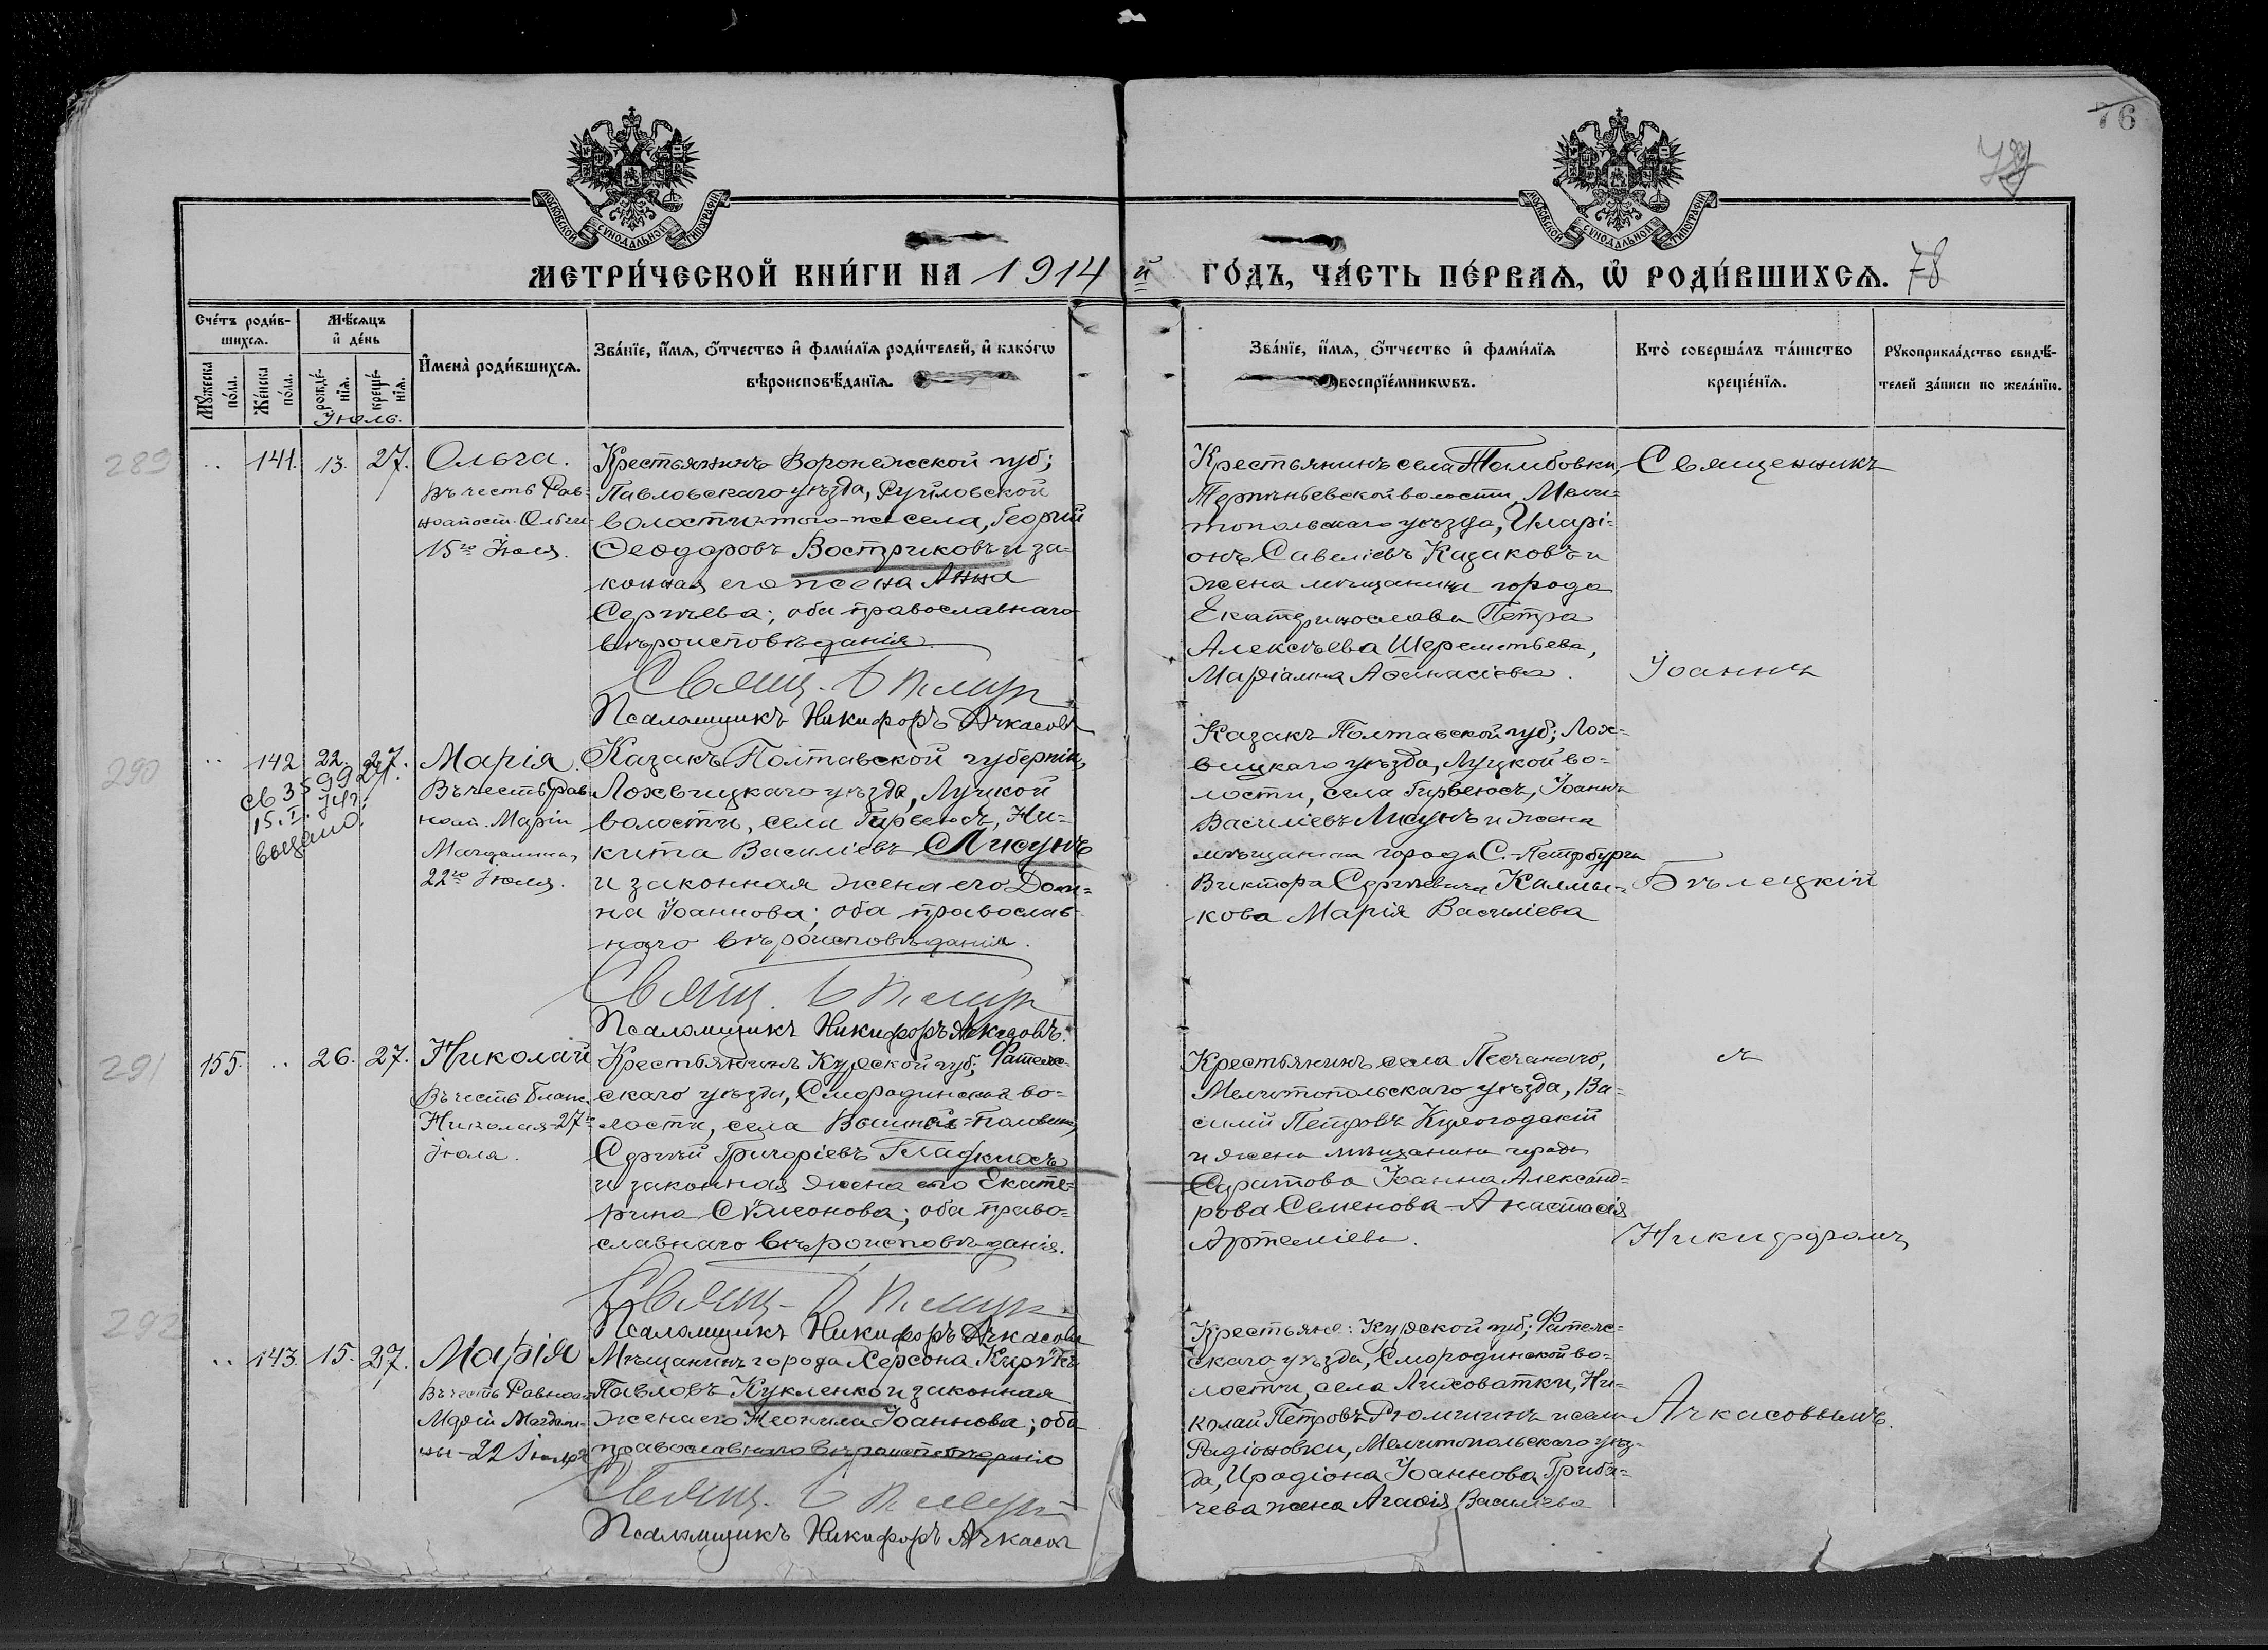 76
78
МОСКОВСКОЙ СѴНОДАЛЬНОЙ ТИПОГРАФІИ
МОСКОВСКОЙ СѴНОДАЛЬНОЙ ТИПОГРАФІИ
МЕТРИ́ЧЕСКОЙ КНИ́ГИ НА 1914 й ГО́ДЪ, ЧА́СТЬ ПЕ́РВАѦ, Ѡ РОДИ́ВШИХСѦ.
Сче́тъ роди́в-
шихсѧ.
Мѣ́сѧцъ
и҆ де́нь
Мꙋ́жеска по́ла.
Же́нска по́ла.
рожде́-
нїѧ.
креще́-
нїѧ.
Июль.
И҆мена̀ роди́вшихсѧ.
Зва́нїе, и҆́мѧ, ѻ҆́тчество и҆ фами́лїѧ роди́телей, и҆ како́гѡ
вѣроисповѣ́данїѧ.
Зва́нїе, и҆́мѧ, ѻ҆́тчество и҆ фами́лїѧ
воспрїе́мникѡвъ.
Кто̀ соверша́лъ та́инство
креще́нїѧ.
Рꙋкоприкла́дство свидѣ́-
телей за́писи по жела́нїю.
289
141. 13. 27.
Ольга.
Въ честь Рав-
ноапост. Ольги
15го Июля.
Крестьянинъ Воронежской губ;
Павловскаго уѣзда,
волости того-же села, Георгій
Ѳеодоровъ Востриковъ и за-
конная его жена Анна
Сергѣева; оба православнаго
вѣроисповѣданія.
Свящ.
Псаломщикъ Никифоръ Ачкасовъ
Крестьянинъ села
волости, Мели-
топольскаго уѣзда, Иларі-
онъ Савеліевъ Казаковъ и
жена мѣщанина города
Екатеринослава Петра
Алексѣева Шереметьева,
Маріамна Аѳанасіева.
Священникъ
Іоаннъ
290
142 22. 27.
св 3599
15.I.
выдано.
Марія.
Въ честь рав-
ноап. Маріи
Магдалины,
22го Июля.
Казакъ Полтавской губерніи,
Лохвицкаго уѣзда, Луцкой
волости, села Гирвеюсъ, Ни-
кита Василіевъ Лисунъ
и законная жена его Дом-
на Іоаннова; оба православ-
наго вѣроисповѣданія.
Свящ.
Псаломщикъ Никифоръ Ачкасовъ.
Казакъ Полтавской губ; Лох-
вицкаго уѣзда, Луцкой во-
лости, села Гирвеюсъ, Іоаннъ
Василіевъ Лисунъ и жена
мѣщанина города С.-Петербурга
Виктора Сергѣевича Калмы-
кова Марія Василіева
Бѣлецкій
291
155. 26. 27.
Николай
Въ честь Блаж.
Николая 27го
Июля.
Крестьянинъ Курской губ; Фатеж-
скаго уѣзда, Смородинской во-
лости, села
Сергѣй Григоріевъ Гладкихъ
и законная жена его Екате-
рина Сѵмеонова; оба право-
славнаго вѣроисповѣданія.
Свящ.
Псаломщикъ Никифоръ Ачкасовъ
Крестьянинъ села Песчанаго,
Мелитопольскаго уѣзда, Ва-
силій Петровъ
и жена мѣщанина города
Саратова Іоанна Александ-
рова Семенова Анастасія
Артеміева.
съ
Никифоромъ
292
143. 15. 27.
Марія
Въ честь Равноап
Маріи Магдали-
ны 22 Июля
Мѣщанинъ города Херсона Кирикъ
Павловъ Кукленко и законная
жена его Неонила Іоаннова; оба
православнаго вѣроисповѣданія
Свящ.
Псаломщикъ Никифоръ Ачкасов
Крестьяне: Курской губ; Фатеж-
скаго уѣзда, Смородинской во-
лости, села Лиховатки, Ни-
колай Петровъ Рюмшинъ и села
Радіоновки, Мелитопольскаго уѣз-
да, Иродіона Іоаннова Гриба-
чева жена Агаѳія Василіева
Ачкасовымъ.